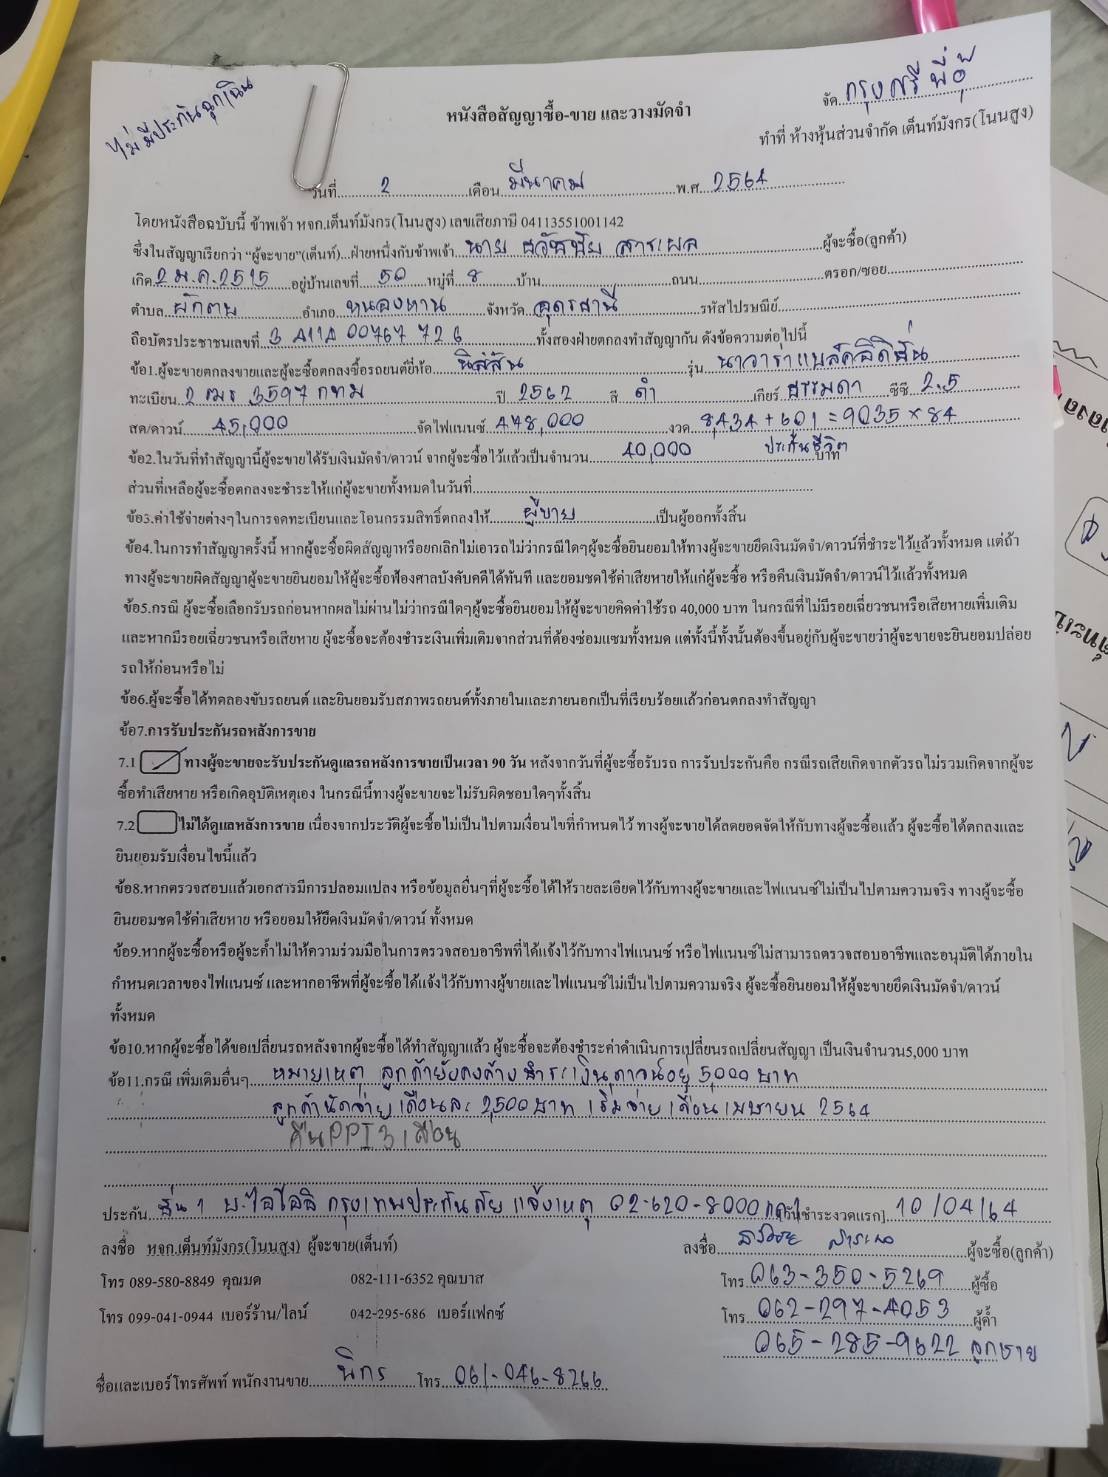 ไม่มีประกันฉุกเฉิน
จัด กรุงศรี พี่อุ้
หนังสือสัญญาซื้อ-ขาย และวางมัดจำ
ทำที่ ห้างหุ้นส่วนจำกัด เต็นท์มังกร(โนนสูง)
วันที่ 2 เดือน มีนาคม พ.ศ. 2564
โดยหนังสือฉบับนี้ ข้าพเจ้า หจก.เต็นท์มังกร(โนนสูง) เลขเสียภาษี 04113551001142
ซึ่งในสัญญาเรียกว่า "ผู้จะขาย"(เต็นท์)...ฝ่ายหนึ่งกับข้าพเจ้า นาย ธวัชชัย สาระผล ผู้จะซื้อ(ลูกค้า)
เกิด 2 ม.ค. 2515 อยู่บ้านเลขที่ 50 หมู่ที่ 8 บ้าน ถนน ตรอก/ซอย
ตำบล ผักตบ อำเภอ หนองหาน จังหวัด อุดรธานี รหัสไปรษณีย์
ถือบัตรประชาชนเลขที่ 3 4114 00767 72 6 ทั้งสองฝ่ายตกลงทำสัญญากัน ดังข้อความต่อไปนี้
ข้อ1.ผู้จะขายตกลงขายและผู้จะซื้อตกลงซื้อรถยนต์ยี่ห้อ นิสสัน รุ่น นาวาราแบล็คอิดิชั่น
ทะเบียน 2 ฒร 3597 กทม ปี 2562 สี ดำ เกียร์ ธรรมดา ซีซี 2.5
สด/ดาวน์ 45,000 จัดไฟแนนซ์ 448,000 งวด 8,434 + 601 = 9035 × 84
ข้อ2.ในวันที่ทำสัญญานี้ผู้จะขายได้รับเงินมัดจำ/ดาวน์ จากผู้จะซื้อไว้แล้วเป็นจำนวน 40,000 บาท ประกันชีวิต
ส่วนที่เหลือผู้จะซื้อตกลงจะชำระให้แก่ผู้จะขายทั้งหมดในวันที่
ข้อ3.ค่าใช้จ่ายต่างๆในการจดทะเบียนและโอนกรรมสิทธิ์ตกลงให้ ผู้ขาย เป็นผู้ออกทั้งสิ้น
ข้อ4.ในการทำสัญญาครั้งนี้ หากผู้จะซื้อผิดสัญญาหรือยกเลิกไม่เอารถไม่ว่ากรณีใดๆผู้จะซื้อยินยอมให้ทางผู้จะขายยึดเงินมัดจำ/ดาวน์ที่ชำระไว้แล้วทั้งหมด แต่ถ้า
ทางผู้จะขายผิดสัญญาผู้จะขายยินยอมให้ผู้จะซื้อฟ้องศาลบังคับคดีได้ทันที และยอมชดใช้ค่าเสียหายให้แก่ผู้จะซื้อ หรือคืนเงินมัดจำ/ดาวน์ไว้แล้วทั้งหมด
ข้อ5.กรณี ผู้จะซื้อเลือกรับรถก่อนหากผลไม่ผ่านไม่ว่ากรณีใดๆผู้จะซื้อยินยอมให้ผู้จะขายคิดค่าใช้รถ 40,000 บาท ในกรณีที่ไม่มีรอยเฉี่ยวชนหรือเสียหายเพิ่มเติม
และหากมีรอยเฉี่ยวชนหรือเสียหาย ผู้จะซื้อจะต้องชำระเงินเพิ่มเติมจากส่วนที่ต้องซ่อมแซมทั้งหมด แต่ทั้งนี้ทั้งนั้นต้องขึ้นอยู่กับผู้จะขายว่าผู้จะขายจะยินยอมปล่อย
รถให้ก่อนหรือไม่
ข้อ6.ผู้จะซื้อได้ทดลองขับรถยนต์ และยินยอมรับสภาพรถยนต์ทั้งภายในและภายนอกเป็นที่เรียบร้อยแล้วก่อนตกลงทำสัญญา
ข้อ7.การรับประกันรถหลังการขาย
7.1 ทางผู้จะขายจะรับประกันดูแลรถหลังการขายเป็นเวลา 90 วัน หลังจากวันที่ผู้จะซื้อรับรถ การรับประกันคือ กรณีรถเสียเกิดจากตัวรถไม่รวมเกิดจากผู้จะ
ซื้อทำเสียหาย หรือเกิดอุบัติเหตุเอง ในกรณีนี้ทางผู้จะขายจะไม่รับผิดชอบใดๆทั้งสิ้น
7.2 ไม่ได้ดูแลหลังการขาย เนื่องจากประวัติผู้จะซื้อไม่เป็นไปตามเงื่อนไขที่กำหนดไว้ ทางผู้จะขายได้ลดยอดจัดให้กับทางผู้จะซื้อแล้ว ผู้จะซื้อได้ตกลงและ
ยินยอมรับเงื่อนไขนี้แล้ว
ข้อ8.หากตรวจสอบแล้วเอกสารมีการปลอมแปลง หรือข้อมูลอื่นๆที่ผู้จะซื้อได้ให้รายละเอียดไว้กับทางผู้จะขายและไฟแนนซ์ไม่เป็นไปตามความจริง ทางผู้จะซื้อ
ยินยอมชดใช้ค่าเสียหาย หรือยอมให้ยึดเงินมัดจำ/ดาวน์ ทั้งหมด
ข้อ9.หากผู้จะซื้อหรือผู้จะค้ำไม่ให้ความร่วมมือในการตรวจสอบอาชีพที่ได้แจ้งไว้กับทางไฟแนนซ์ หรือไฟแนนซ์ไม่สามารถตรวจสอบอาชีพและอนุมัติได้ภายใน
กำหนดเวลาของไฟแนนซ์ และหากอาชีพที่ผู้จะซื้อได้แจ้งไว้กับทางผู้ขายและไฟแนนซ์ไม่เป็นไปตามความจริง ผู้จะซื้อยินยอมให้ผู้จะขายยึดเงินมัดจำ/ดาวน์
ทั้งหมด
ข้อ10.หากผู้จะซื้อได้ขอเปลี่ยนรถหลังจากผู้จะซื้อได้ทำสัญญาแล้ว ผู้จะซื้อจะต้องชำระค่าดำเนินการเปลี่ยนรถเปลี่ยนสัญญา เป็นเงินจำนวน5,000 บาท
ข้อ11.กรณี เพิ่มเติมอื่นๆ หมายเหตุ ลูกค้ายังคงค้างชำระเงินดาวน์อยู่ 5,000 บาท
ลูกค้านัดจ่ายเดือนละ 2,500 บาท เริ่มจ่ายเดือนเมษายน 2564
คืนPPI 3 เดือน
ประกัน ชั้น 1 บ.ไอโออิ กรุงเทพประกันภัย แจ้งเหตุ 02-620-8000 กด1 [วันชำระงวดแรก] 10/04/64
ลงชื่อ หจก.เต็นท์มังกร(โนนสูง) ผู้จะขาย(เต็นท์) ลงชื่อ ธวัชชัย สาระผล ผู้จะซื้อ(ลูกค้า)
โทร 089-580-8849 คุณมด 082-111-6352 คุณบาส โทร 063-350-5269 ผู้ซื้อ
โทร 099-041-0944 เบอร์ร้าน/ไลน์ 042-295-686 เบอร์แฟกซ์ โทร 062-297-4053 ผู้ค้ำ
065-285-9622 ลูกชาย
ชื่อและเบอร์โทรศัพท์ พนักงานขาย นิกร โทร 061-046-8266